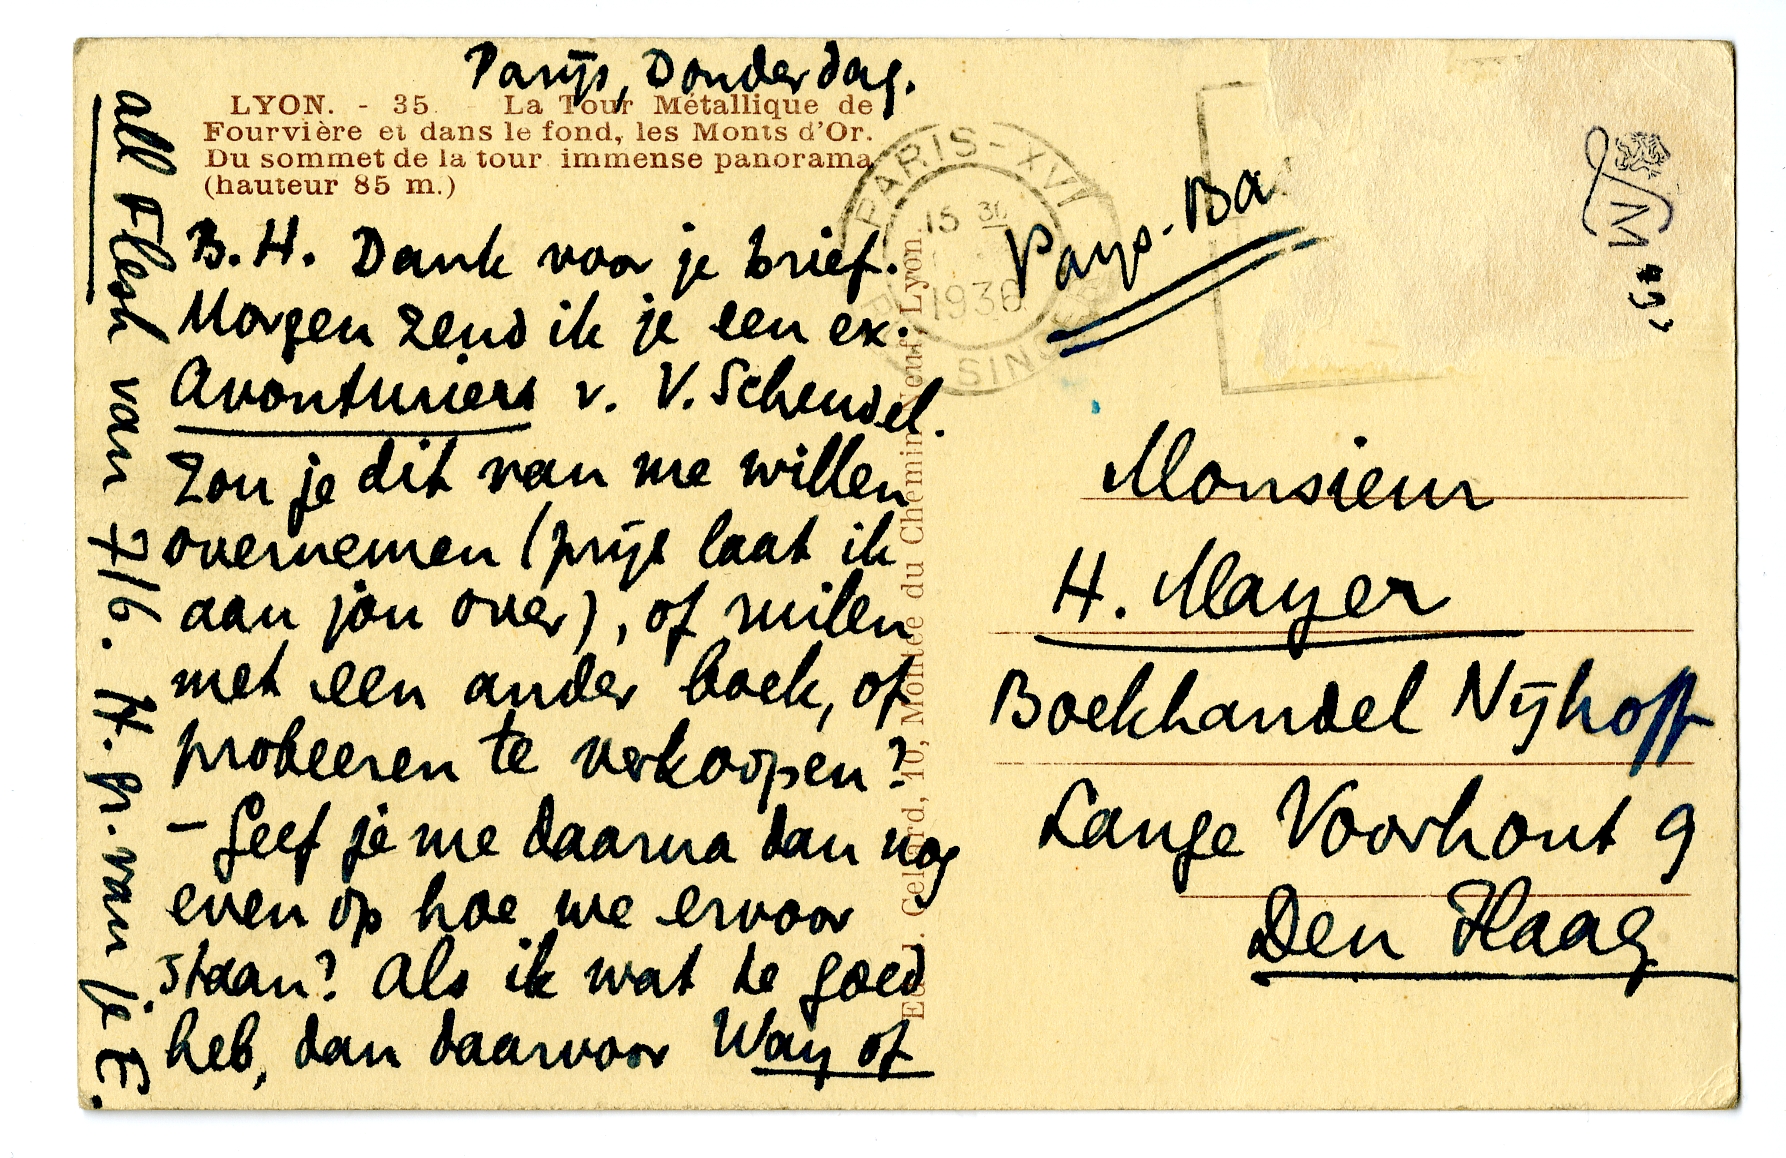 Parijs, Donderdag.
LYON. - 35 - La Tour Métallique de
Fourvière et dans le fond, les Monts d'Or.
Du sommet de la tour immense panorama
(hauteur 85 m.)
B.H. Dank voor je brief.
Morgen zend ik je een ex.
Avonturiers v. V. Schendel.
Zou je dit van me willen
overnemen (prijs laat ik
aan jou over), of ruilen
met een ander boek, of
probeeren te verkoopen?
- Geef je me daarna dan nog
even op hoe we ervoor
staan? Als ik wat te goed
heb, dan daarvoor Way of
all Flesh van 7/6. H. gr. van je E.
Edit. Gelard, 10, Montée du Chemin Neuf, Lyon
PARIS-XVI
15
1936
SINGER
Pays-Bas
LM
49'
Monsieur
H. Mayer
Boekhandel Nijhoff
Lange Voorhout 9
Den Haag